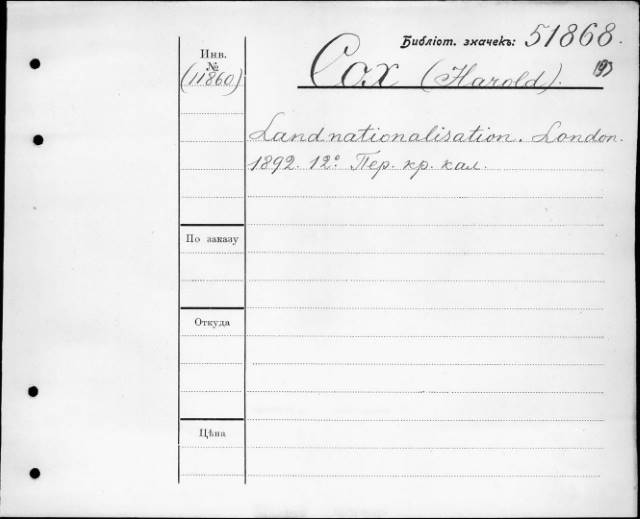 Библіот. значекъ: 51868.
Инв.
№
(11860)
Cox (Harold).
Landnationalisation. London.
1892. 12º Пер. кр. кал.
По заказу
Откуда
Цѣна